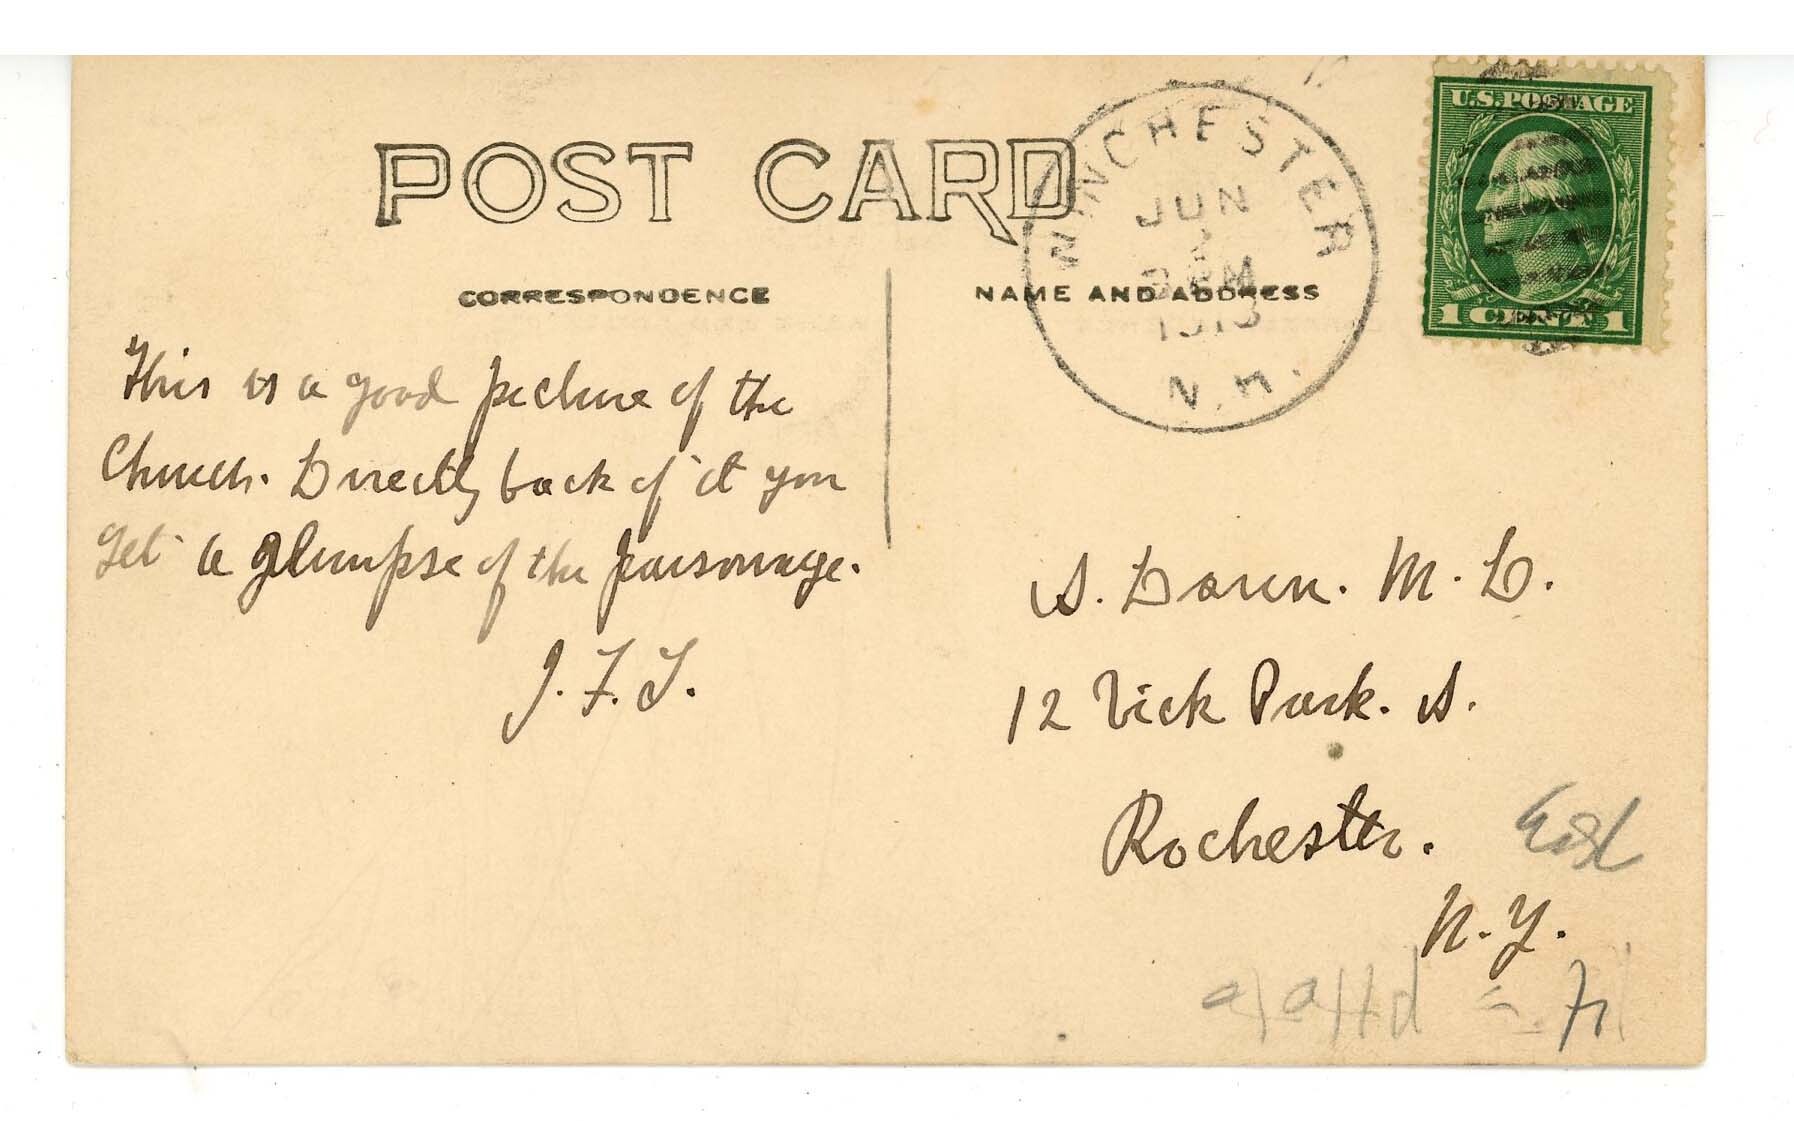 POST CARD
WINCHESTER
JUN
2
PM
1913
N.H.
U.S. POSTAGE
1 CENT 1
CORRESPONDENCE
NAME AND ADDRESS
This is a good picture of the
Church. Directly back of it you
get a glimpse of the parsonage.
J. F. T.
S. Doren. M. D.
12 Vick Park. A.
Rochester.
N. Y.